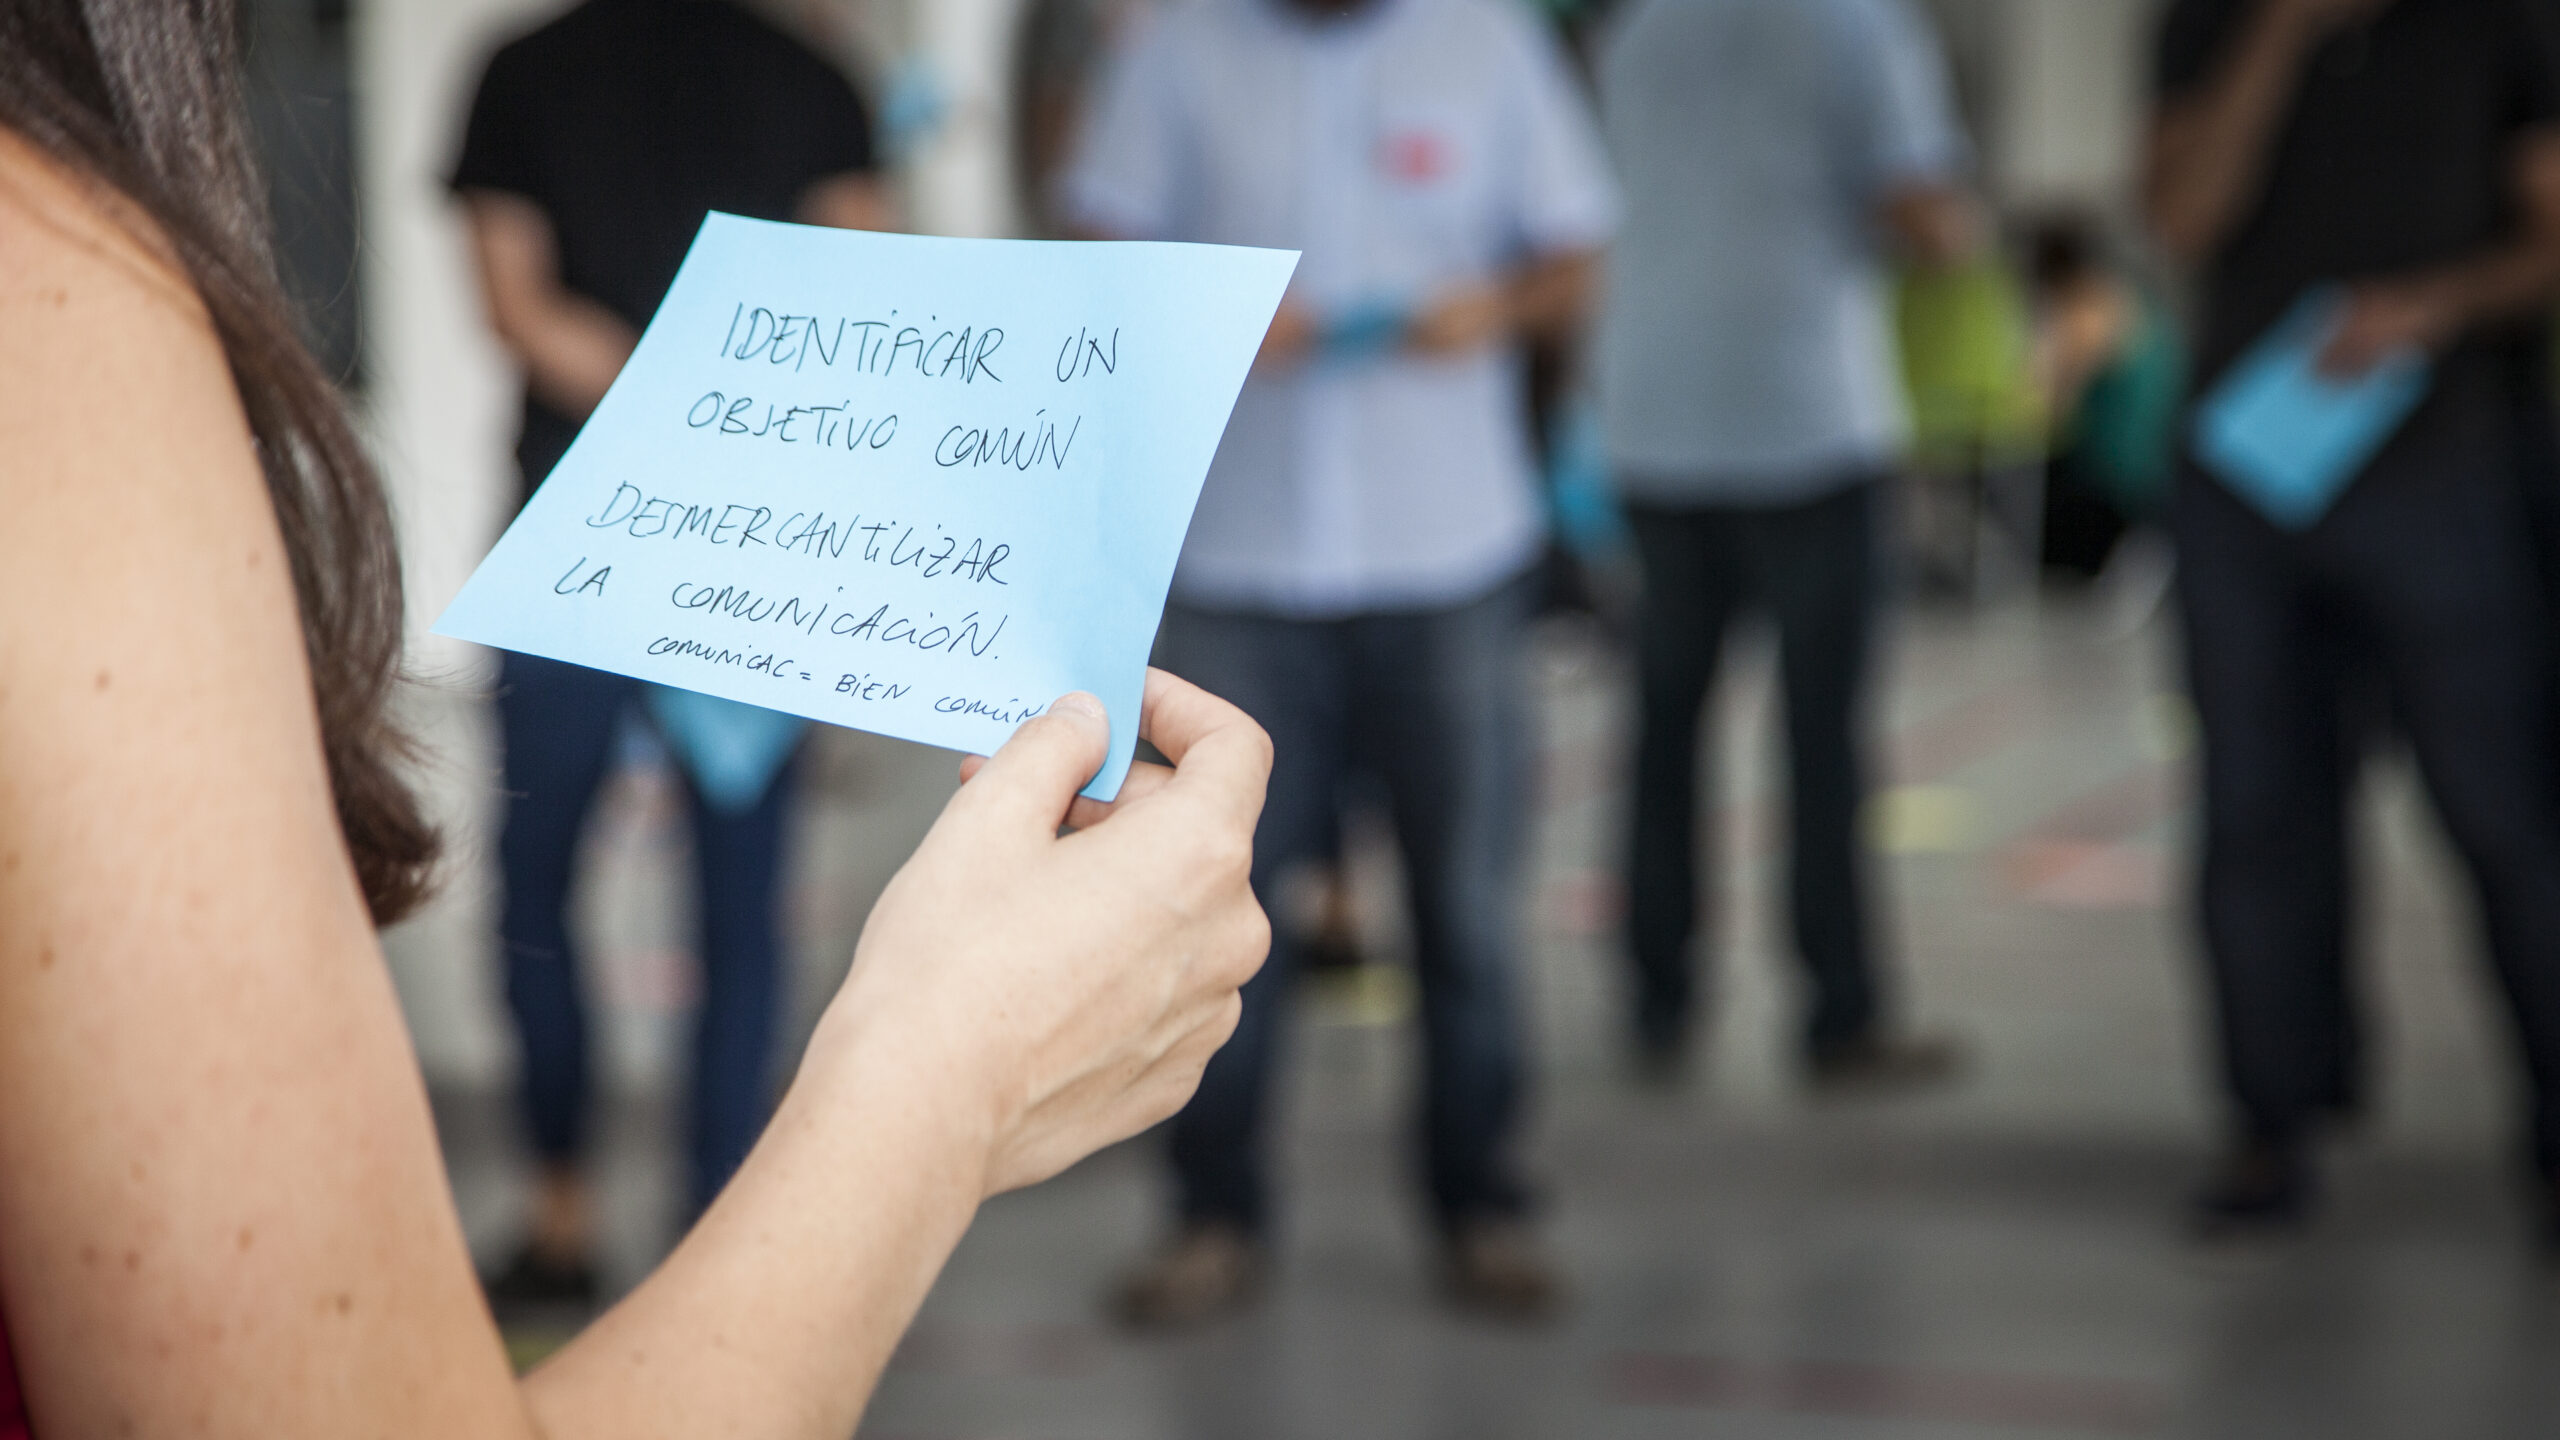 IDENTIFICAR UN
OBJETIVO COMÚN
DESMERCANTILIZAR
LA COMUNICACIÓN.
COMUNICAC = BIEN COMÚN